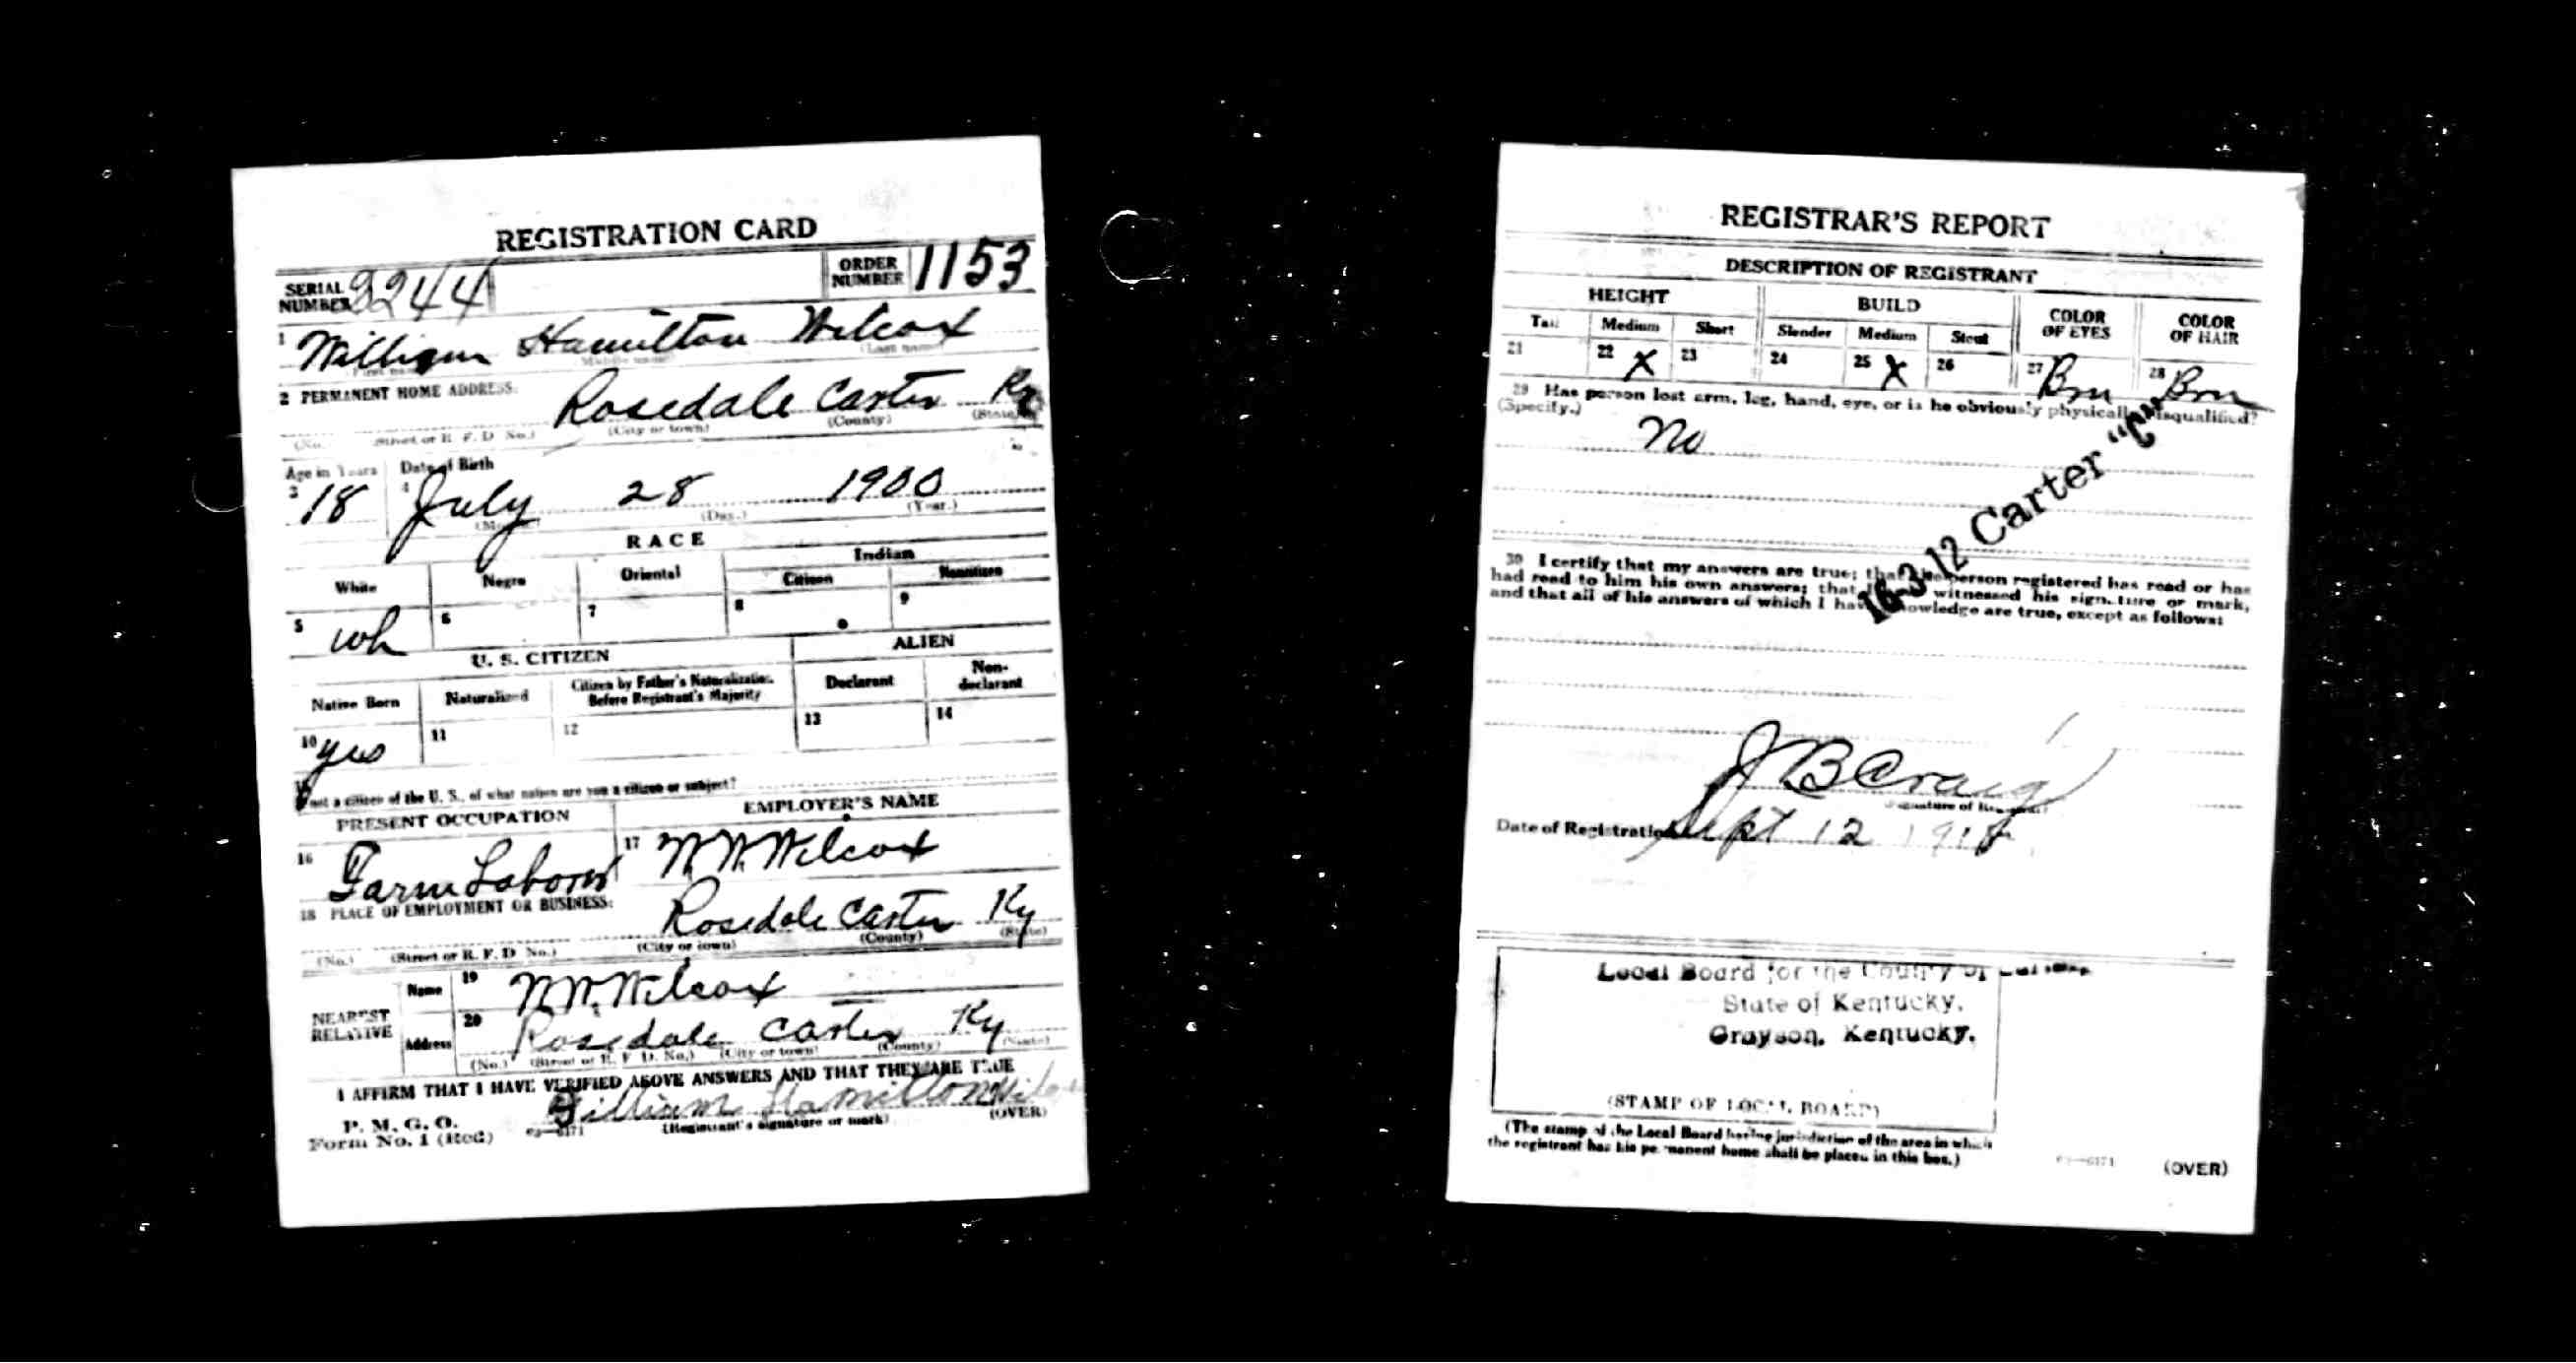 REGISTRATION CARD
SERIAL NUMBER 2244 ORDER NUMBER 1153
1 William Hamilton Wilcox
(First name) (Middle name) (Last name)
2 PERMANENT HOME ADDRESS:
Rosedale Carter Ky
(No.) (Street or R. F. D. No.) (City or town) (County) (State)
Age in Years Date of Birth
3 18 4 July 28 1900
(Month.) (Day.) (Year.)
RACE
White Negro Oriental Indian
Citizen Noncitizen
5 wh 6 7 8 9
U. S. CITIZEN ALIEN
Native Born Naturalized Citizen by Father's Naturalization Before Registrant's Majority Declarant Non-declarant
10 yes 11 12 13 14
15 not a citizen of the U. S., of what nation are you a citizen or subject?
PRESENT OCCUPATION EMPLOYER'S NAME
16 Farm Labor 17 Wilcox
18 PLACE OF EMPLOYMENT OR BUSINESS:
Rosedale Carter Ky
(No.) (Street or R. F. D. No.) (City or town) (County) (State)
NEAREST RELATIVE
Name 19 Wilcox
Address 20 Rosedale Carter Ky
(No.) (Street or R. F. D. No.) (City or town) (County) (State)
I AFFIRM THAT I HAVE VERIFIED ABOVE ANSWERS AND THAT THEY ARE TRUE
P. M. G. O.
Form No. 1 (Red) William Hamilton
(Registrant's signature or mark) (OVER)
REGISTRAR'S REPORT
DESCRIPTION OF REGISTRANT
HEIGHT BUILD COLOR OF EYES COLOR OF HAIR
Tall Medium Short Slender Medium Stout
21 22 X 23 24 25 X 26 27 Brn 28 Brn
29 Has person lost arm, leg, hand, eye, or is he obviously physically disqualified?
(Specify.)
No
16-3-12 Carter "C"
30 I certify that my answers are true; that the person registered has read or has
had read to him his own answers; that witnessed his signature or mark,
and that all of his answers of which I have knowledge are true, except as follows:
J B Craig
(Signature of Registrar)
Date of Registration Sept 12 1918
Local Board for the County of Carter
State of Kentucky,
Grayson, Kentucky.
(STAMP OF LOCAL BOARD)
(The stamp of the Local Board having jurisdiction of the area in which
the registrant has his permanent home shall be placed in this box.)
(OVER)